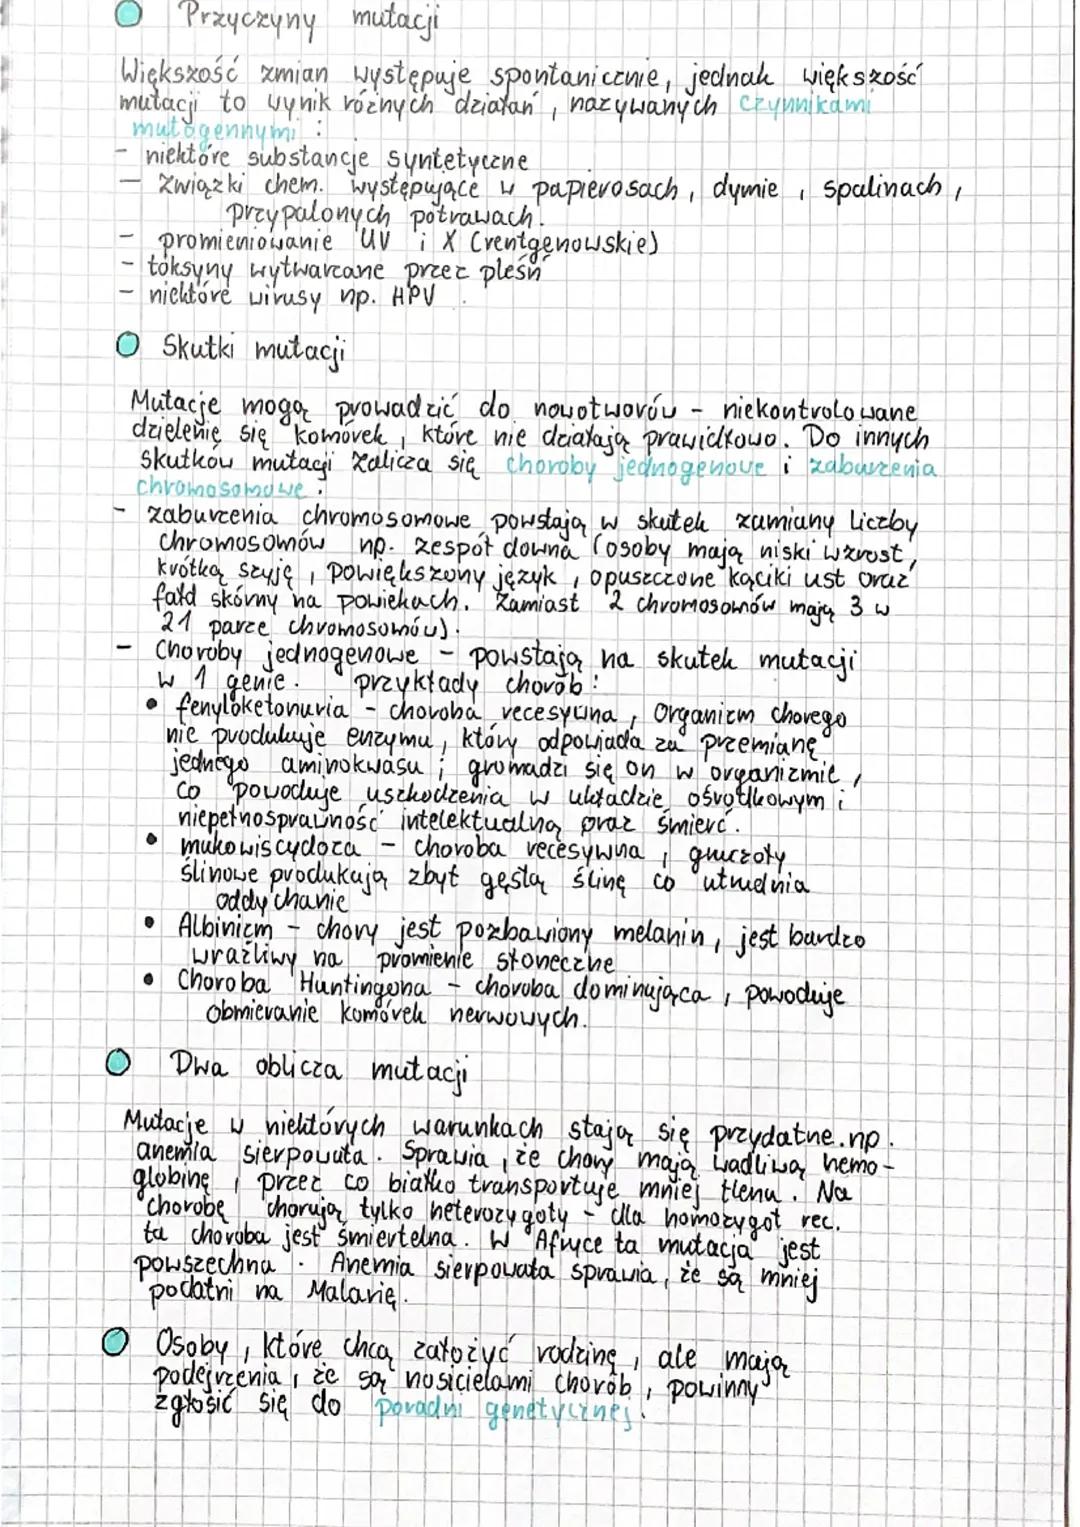 Przyczyny mutacji
Większość zmian występuje spontanicznie, jednak większość
mutacji to wynik różnych działań, nazywanych czynnikami
mutogennymi :
- niektóre substancje syntetyczne
- związki chem. występujące w papierosach, dymie, spalinach,
przypalonych potrawach.
- promieniowanie UV i X (rentgenowskie)
- toksyny wytwarzane przez pleśń
- niektóre wirusy np. HPV
Skutki mutacji
Mutacje mogą prowadzić do nowotworów - niekontrolowane
dzielenie się komórek, które nie działają prawidłowo. Do innych
skutków mutacji zalicza się choroby jednogenowe i zaburzenia
chromosomowe :
- zaburzenia chromosomowe powstają w skutek zamiany liczby
chromosomów np. zespół downa (osoby mają niski wzrost,
krótką szyję, powiększony język, opuszczone kąciki ust oraz
fałd skórny na powiekach. Zamiast 2 chromosomów mają 3 w
21 parze chromosomów).
- Choroby jednogenowe - powstają na skutek mutacji
w 1 genie. przykłady chorób :
• fenyloketonuria - choroba recesywna, organizm chorego
nie produkuje enzymu, który odpowiada za przemianę
jednego aminokwasu ; gromadzi się on w organizmie,
co powoduje uszkodzenia w układzie ośrodkowym i
niepełnosprawność intelektualną oraz śmierć.
• mukowiscydoza - choroba recesywna, gruczoły
ślinowe produkują zbyt gęstą ślinę co utrudnia
oddychanie
• Albinizm - chory jest pozbawiony melanin, jest bardzo
wrażliwy na promienie słoneczne
• Choroba Huntingona - choroba dominująca, powoduje
obmieranie komórek nerwowych.
Dwa oblicza mutacji
Mutacje w niektórych warunkach stają się przydatne.np.
anemia sierpowata. Sprawia, że chory mają wadliwą hemo-
globinę, przez co białko transportuje mniej tlenu. Na
chorobę chorują tylko heterozygoty - dla homozygot rec.
ta choroba jest śmiertelna. W Afryce ta mutacja jest
powszechna. Anemia sierpowata sprawia, że są mniej
podatni na Malarię.
Osoby, które chcą założyć rodzinę, ale mają
podejrzenia, że są nosicielami chorób, powinny
zgłosić się do poradni genetycznej.